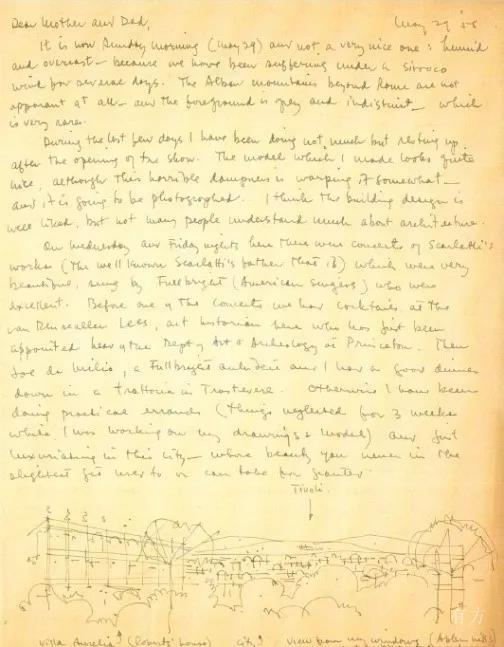 Dear Mother and Dad, May 29 '55
It is now Sunday morning (May 29) and not a very nice one: humid
and overcast - because we have been suffering under a sirocco
wind for several days. The Alban mountains beyond Rome are not
apparent at all - and the foreground is grey and indistinct - which
is very rare.
During the last few days I have been doing not much but resting up
after the opening of the show. The model which I made looks quite
nice, although this horrible dampness is warping it somewhat -
and it is going to be photographed. I think the building design is
well liked, but not many people understand much about architecture.
On Wednesday and Friday nights here there were concerts of Scarlatti's
works (the well known Scarlatti's father that is) which were very
beautiful, sung by Fullbright (American singers) who were
excellent. Before one of the concerts we had cocktails at the
van Rensselaer Lees, art historian here who has just been
appointed head of the Dept of Art & Archeology at Princeton. Then
Joe a Fullbright and I had a good dinner
down in a trattoria in Trastevere. Otherwise I have been
doing practical errands (things neglected for 3 weeks
while I was working on my drawings & model) and just
luxuriating in this city - whose beauty you never in the
slightest get used to or can take for granted.
Tivoli
Villa Aurelia (Roberts' house) city view from my windows (Alban hills)
有方